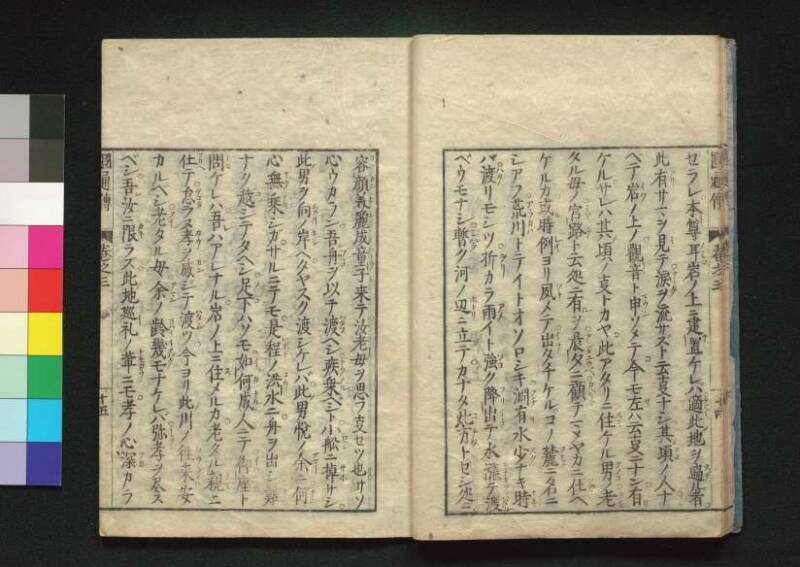 セラレ本尊耳岩ノ上ニ建置ケレバ適此地ヲ過ル者
此有サマヲ見テ涙ヲ流サスト云支ナシ其頃ノ人十
ヘテ岩ノ上ノ觀音ト申ツメテ今モ左ハ云支ニナン有
ケルサレハ其頃ノ支トカヤ此アタリニ住ケル男ノ老
タル母ノ官路ト云処ニ有ノ晨夕ニ顧テマメヤカニ仕ヘ
ケルカ或時例ヨリ夙メテ出タチケルコノ麓ニ名ニ
シアフ荒川トテイトオソロシキ澗有水少ナキ時
ハ渡リモシツ折カラ雨イト強ク降出テ水漲テ渡
ベウモナシ暫ク河ノ辺ニ立テカナタ此方トセシ処ニ
容顔美麗成童子来テ汝老母ヲ思フ支セツ也サソ
心ウカラシ吾舟ヲ以テ渡ヘシ疾乗ヘシト小舩ニ掉サシ
此男ヲ向ノ岸ヘタヤスク渡シケレバ此男悦ノ余ニ何
心無乗シカサルニテモ是程ノ洪水ニ舟ヲ出シ難
ナク越シテタヘシ足下ハソモ如何成人ニテ居座ト
問ケレハ吾ハアレナル岩ノ上ニ住メルカ老タル親ニ
仕テ怠ラヌ孝ノ感シテ渡ツ今ヨリ此川ノ往来安
カルヘシ老タル母余ノ齢幾モナケレバ弥孝ヲ尽ス
ベシ吾汝ニ限ラス此地巡礼ノ輩ニモ孝ノ心深カラ
圓通傳
卷之三
十五